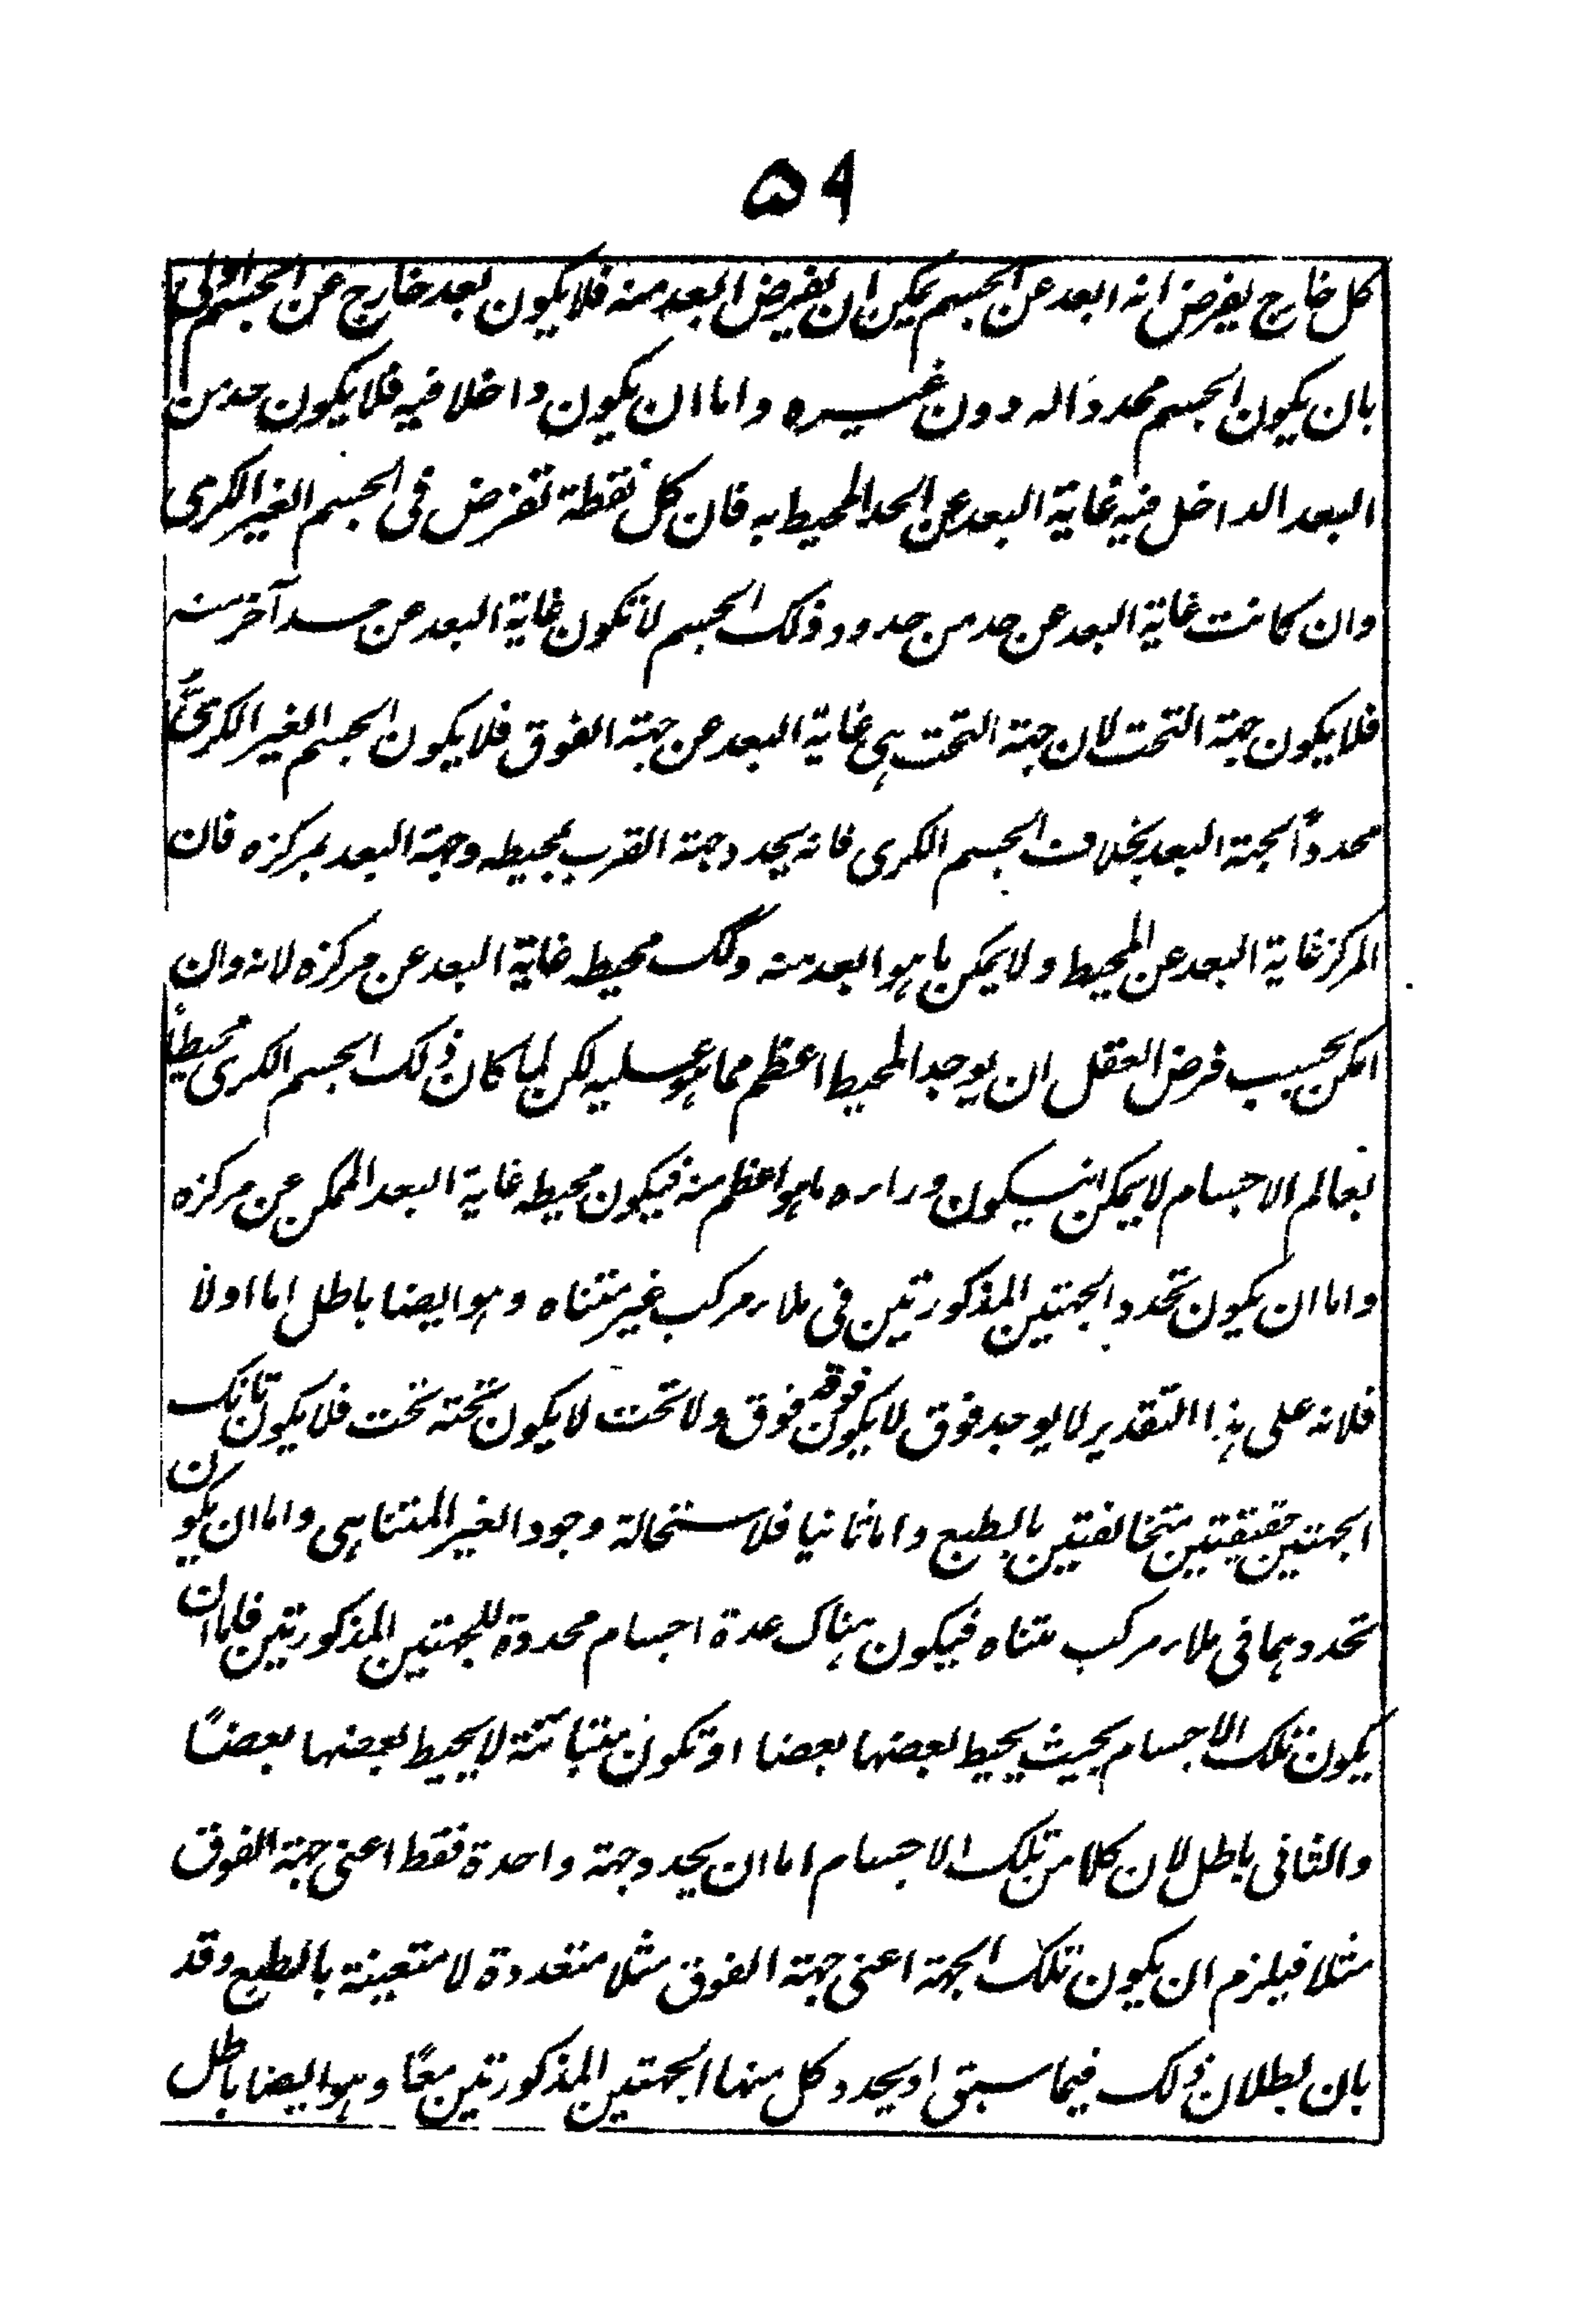 ۵۹
كل خارج يفرض انه ابعد عن الجسم يمكن ان يفرض ابعد منه فلا يكون بعد خارج عن الجسم اولى
بان يكون الجسم محددا له دون غيره واما ان يكون داخلا فيه فلا يكون حد من
البعد الداخل فيه غاية البعد عن الحد المحيط به فان كل نقطة تفرض فى الجسم الغير الكرى
وان كانت غاية البعد عن حد من حدود ذلك الجسم لا تكون غاية البعد عن حد آخر منه
فلا يكون جهة التحت لان جهة التحت هى غاية البعد عن جهة الفوق فلا يكون الجسم الغير الكرىّ
محدداً لجهة البعد بخلاف الجسم الكرى فانه يحدد جهة القرب بمحيطه وجهة البعد بمركزه فان
المركز غاية البعد عن المحيط ولا يمكن ما هو ابعد منه وذلك محيطه غاية البعد عن مركزه لانه وان
امكن بحسب فرض العقل ان يوجد المحيط اعظم مما هو عليه لكن لما كان ذلك الجسم الكرى محيطاً
بعالم الاجسام لا يمكن انيكون وراءه ما هو اعظم منه فيكون محيطه غاية البعد الممكن عن مركزه
واما ان يكون تحدد الجهتين المذكورتين فى ملاء مركب غير متناه وهو ايضا باطل اما اولا
فلانه على هذا التقدير لا يوجد فوق لا يكون فوقه فوق ولا تحت لا يكون تحته تحت فلا يكون تانك
الجهتين حقيقتين متخالفتين بالطبع واما ثانيا فلاستحالة وجود الغير المتناهى واما ان يكون
تحددهما فى ملاء مركب متناه فيكون هناك عدة اجسام محددة للجهتين المذكورتين فاما ان
يكون تلك الاجسام بحيث يحيط بعضها بعضا او تكون متبائنة لا يحيط بعضها بعضاً
والثانى باطل لان كلا من تلك الاجسام اما ان يحدد جهة واحدة فقط اعنى جهة الفوق
مثلا فيلزم ان يكون تلك الجهة اعنى جهة الفوق مثلا متعددة لا متعينة بالطبع وقد
بان بطلان ذلك فيما سبق او يحدد كل منها الجهتين المذكورتين معًا وهو ايضا باطل